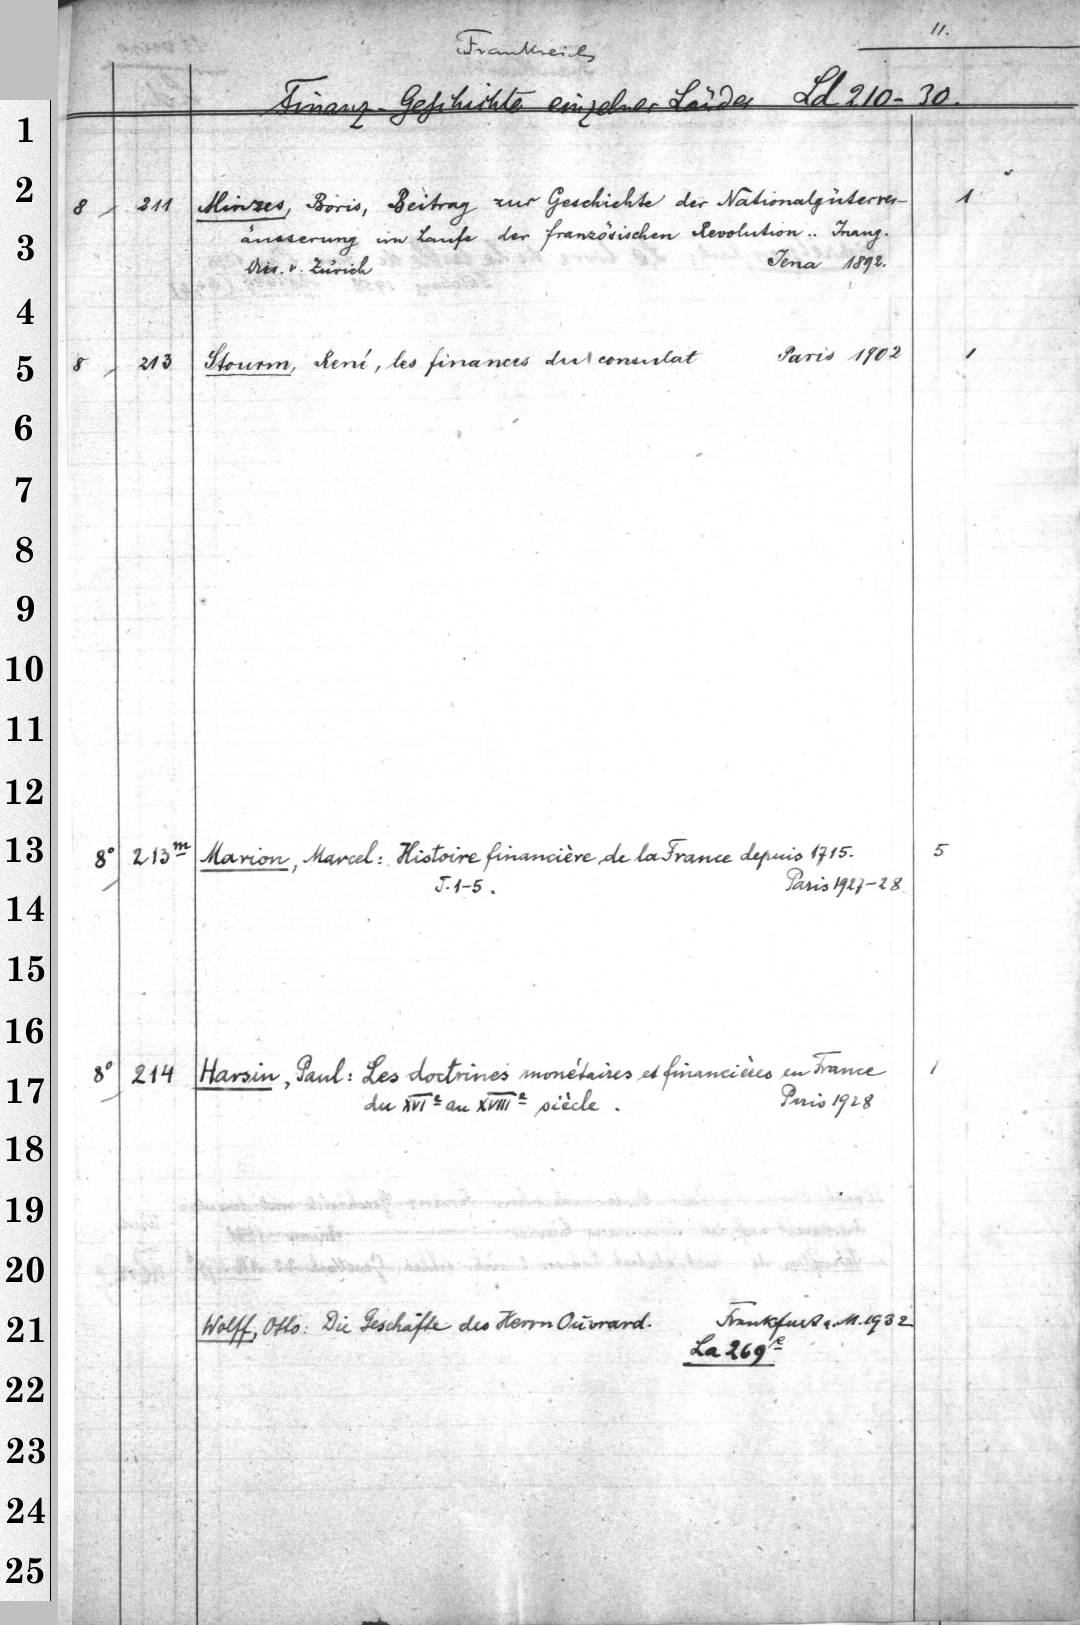 11.
Frankreich
Finanz-Geschichte einzelner Länder Ld 210-30.
1
2
8 211 Minzes, Boris, Beitrag zur Geschichte der Nationalgüterver- 1
3
äusserung im Laufe der französischen Revolution.. Inaug.
Dis. v. Zürich Jena 1892.
4
5
8 213 Stourm, René, les finances du consulat Paris 1902 1
6
7
8
9
10
11
12
13
8° 213m Marion, Marcel: Histoire financière de la France depuis 1715. 5
T. 1-5. Paris 1927-28
14
15
16
17
8° 214 Harsin, Paul: Les doctrines monétaires et financières en France 1
du XVIe au XVIIIe siècle. Paris 1928
18
19
20
21
Wolff, Otto: Die Geschäfte des Herrn Ouvrard. Frankfurt a. M. 1932
La 269e
22
23
24
25